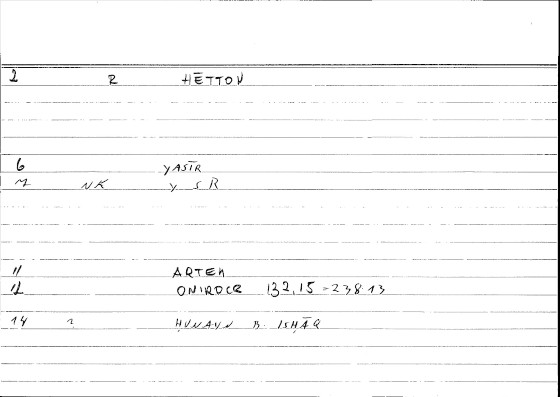 2 2 HĒTTON
6 YASĪR
7 NK Y S R
11 ARTEM
12 ONIROCR 132,15 = 238.13
14 2 ḤUNAYN B. ISḤĀQ